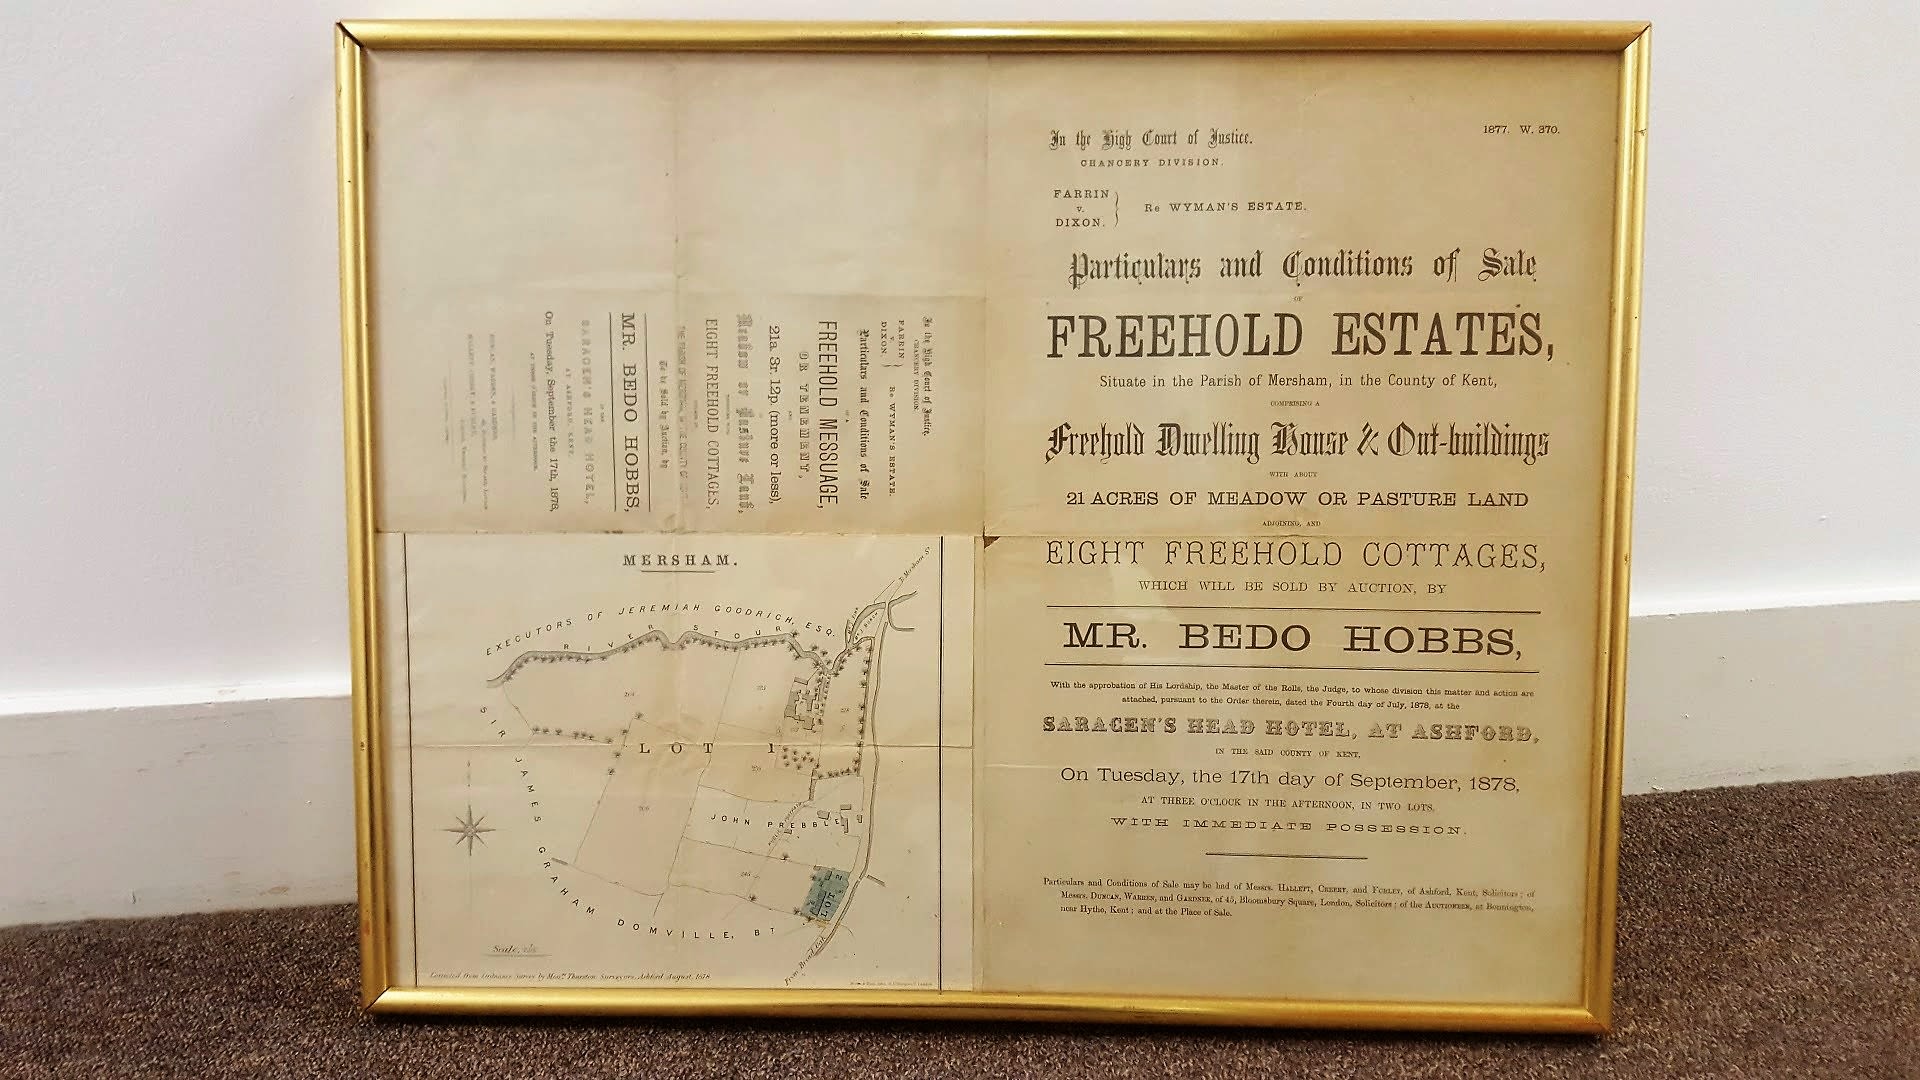 1877. W. 370.
In the High Court of Justice.
CHANCERY DIVISION.
FARRIN
v.
DIXON.
Re WYMAN'S ESTATE.
Particulars and Conditions of Sale
OF
FREEHOLD ESTATES,
Situate in the Parish of Mersham, in the County of Kent,
COMPRISING A
Freehold Dwelling House & Out-buildings
WITH ABOUT
21 ACRES OF MEADOW OR PASTURE LAND
ADJOINING, AND
EIGHT FREEHOLD COTTAGES,
WHICH WILL BE SOLD BY AUCTION, BY
MR. BEDO HOBBS,
With the approbation of His Lordship, the Master of the Rolls, the Judge, to whose division this matter and action are
attached, pursuant to the Order therein, dated the Fourth day of July, 1878, at the
SARACEN'S HEAD HOTEL, AT ASHFORD,
IN THE SAID COUNTY OF KENT,
On Tuesday, the 17th day of September, 1878,
AT THREE O'CLOCK IN THE AFTERNOON, IN TWO LOTS.
WITH IMMEDIATE POSSESSION.
Particulars and Conditions of Sale may be had of Messrs. HALLETT, CREERY, and FURLEY, of Ashford, Kent, Solicitors; of
Messrs. DUNCAN, WARREN, and GARDNER, of 45, Bloomsbury Square, London, Solicitors; of the AUCTIONEER, at Bonnington,
near Hythe, Kent; and at the Place of Sale.
In the High Court of Justice,
CHANCERY DIVISION.
FARRIN
v.
DIXON.
Re WYMAN'S ESTATE.
Particulars and Conditions of Sale
OF A
FREEHOLD MESSUAGE,
OR TENEMENT,
AND
21a. 3r. 12p. (more or less),
OF
Meadow or Pasture Land,
EIGHT FREEHOLD COTTAGES,
To be Sold by Auction, by
MR. BEDO HOBBS,
AT THE
SARACEN'S HEAD HOTEL,
AT ASHFORD, KENT,
On Tuesday, September the 17th, 1878,
AT THREE O'CLOCK IN THE AFTERNOON.
MERSHAM.
To Mersham St
EXECUTORS OF JEREMIAH GOODRICH, ESQ.
RIVER STOUR
LOT 1
JOHN PREBBLE
LOT 2
SIR JAMES GRAHAM DOMVILLE, BT
Scale,
Corrected from Ordnance Survey by Messrs Thurston Surveyors, Ashford August, 1878